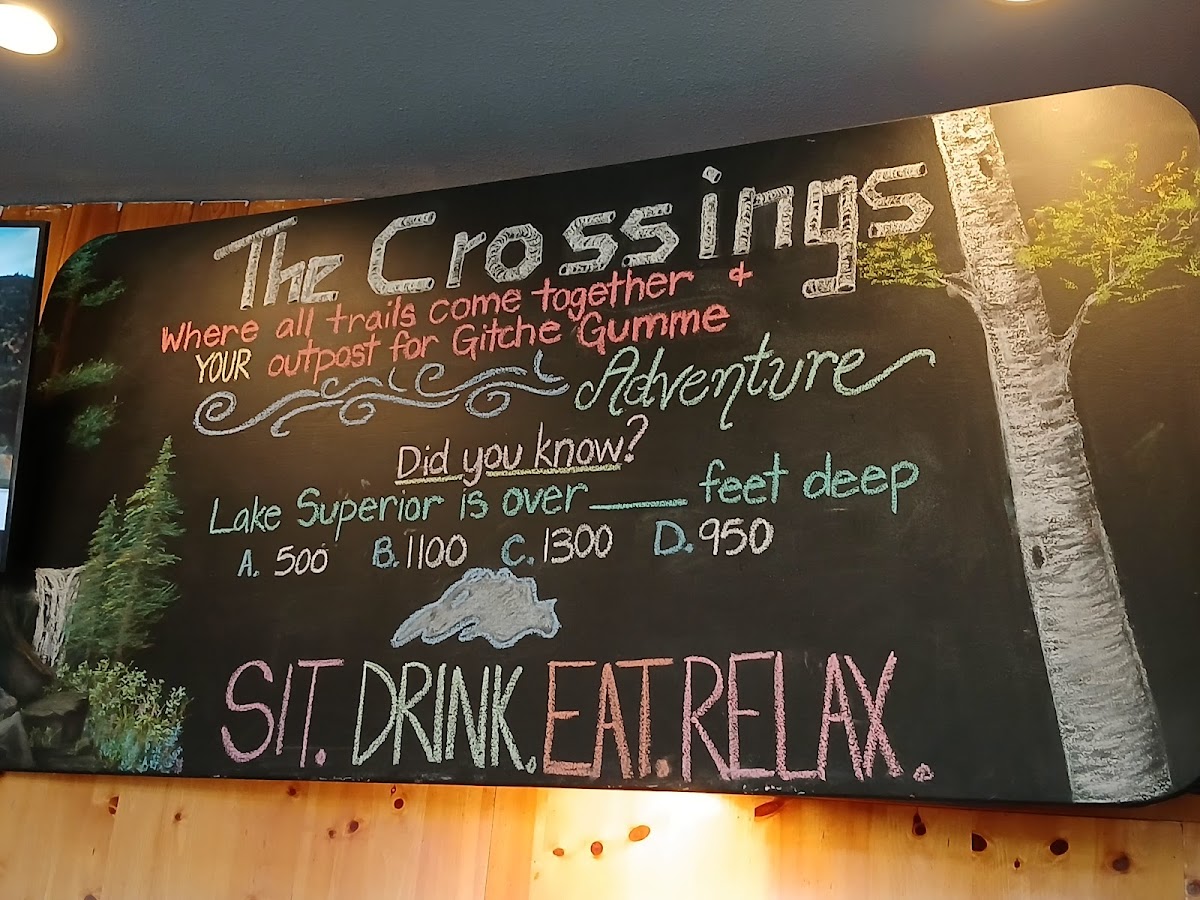 The Crossings
Where all trails come together &
YOUR outpost for Gitche Gumme
Adventure
Did you know?
Lake Superior is over ____ feet deep
A. 500 B. 1100 C. 1300 D. 950
SIT. DRINK. EAT. RELAX.